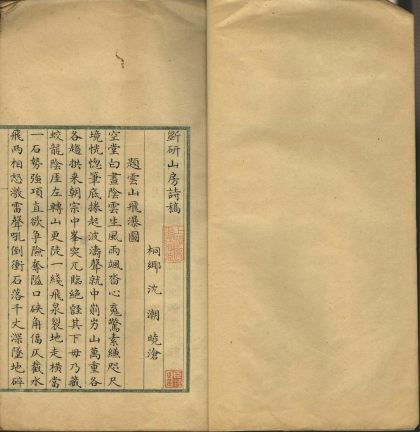 斲研山房詩稿
桐鄉 沈潮 曉滄
題雲山飛瀑圖
空堂白晝陰雲生風雨颯沓心魂驚素縑咫尺
境恍惚筆底掾起波濤聲就中山萬重各
各趨拱來朝宗中峯突兀臨絶壑其下毋乃藏
蛟龍陰崖左轉山更陡一綫飛泉裂地走橫當
一石勢強項直欲爭險奪隘口硤角傴仄截水
飛兩相怒激雷聲吼倒衝石落千丈深墜地碎